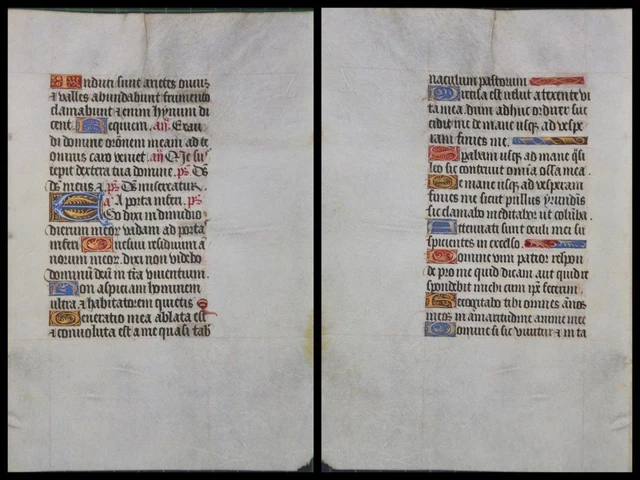 Induti sunt arietes ovius
& valles abundabunt frumento
clamabunt & enim hymnum di
cent. Requiem. añ. Exau
di domine orōnem meam ad te
omnis caro veniet. añ Me sus
cepit dextera tua domine. ps Dš
Dš meus &. ps Dš misereatur.
a. A porta inferi. ps
Ego dixi in dimidio
dierum meor vadam ad portas
inferi Quesivi residuum ā
norum meor. dixi non videbo
dominū deū in tr̄a viventium.
Non aspiciam hominem
ultra & habitatorem quietis
Generatio mea ablata est
& convoluta est a me quasi tab
naculum pastorum
Precisa est velut a texente vi
ta mea. dum adhuc ordirer suc
cidit me de mane usq3 ad vespe
ram finies me.
Sperabam usq3 ad mane q̄si
leo sic contrivit omnia ossa mea.
De mane usq3 ad vesperam
finies me sicut pullus yrundinis
sic clamabo meditabor ut coluba.
Attenuati sunt oculi mei su
spicientes in excelso.
Domine vim patior respon
de pro me quid dicam aut quid re
spondebit michi cum ip̄e fecerim.
Recogitabo tibi omnes ānos
meos in amaritudine anime mee
Domine si sic vivitur & in ta